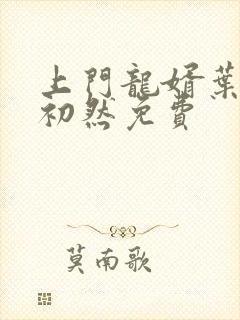 上門龍婿葉
初然免費
莫南歌